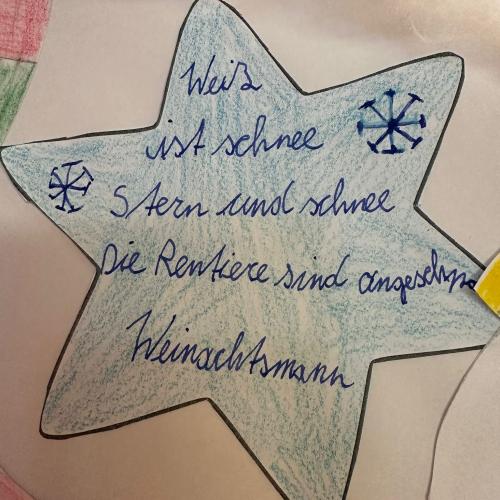 Weiß
ist schnee
Stern und schnee
Die Rentiere sind
Weinachtsmann